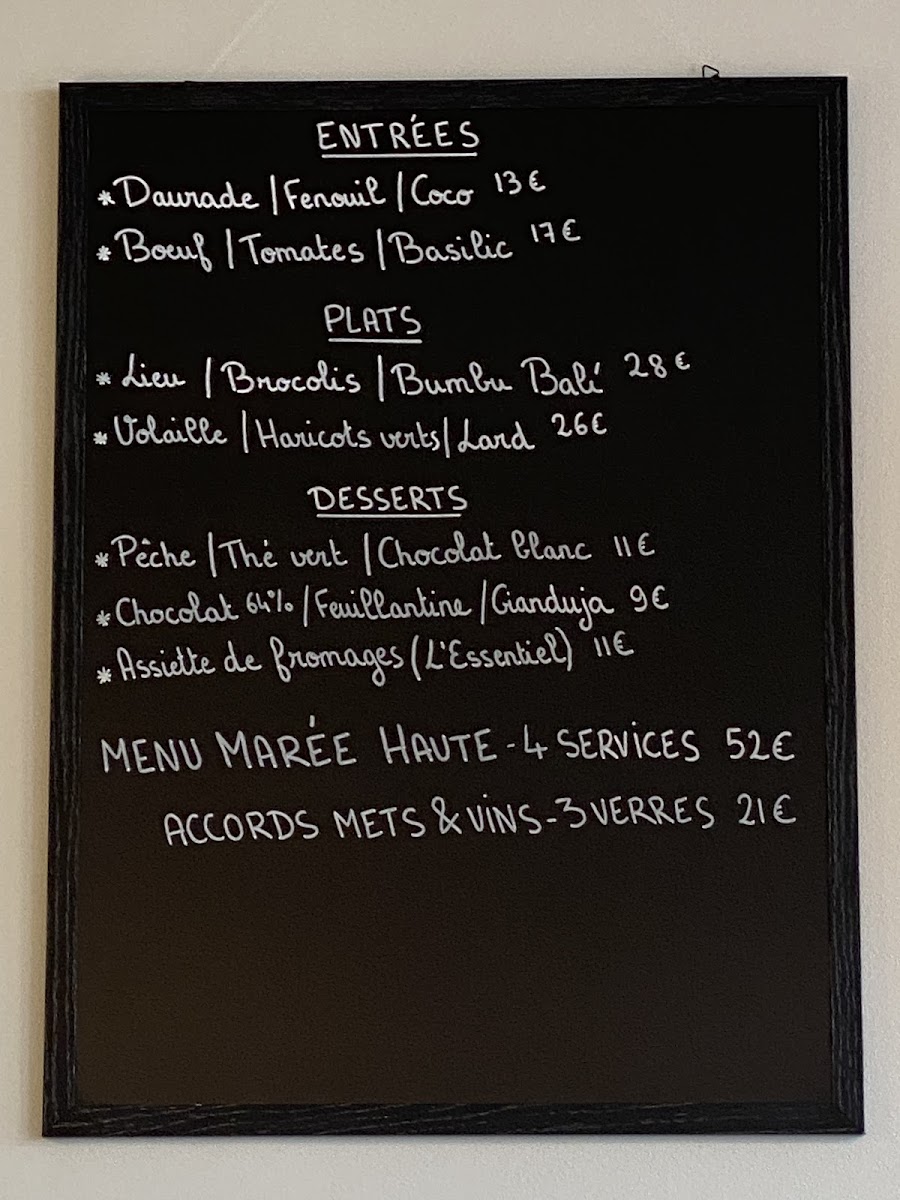 ENTRÉES
* Daurade / Fenouil / Coco 13€
* Boeuf / Tomates / Basilic 17€
PLATS
* Lieu / Brocolis / Bumbu Bali 28€
* Volaille / Haricots verts / Lard 26€
DESSERTS
* Pêche / Thé vert / Chocolat blanc 11€
* Chocolat 64% / Feuillantine / Gianduja 9€
* Assiette de fromages (L'Essentiel) 11€
MENU MARÉE HAUTE - 4 SERVICES 52€
ACCORDS METS & VINS - 3 VERRES 21€